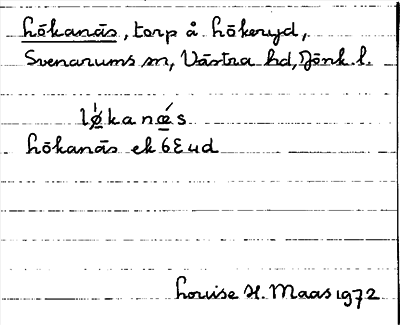 Lökanäs, torp å Hökeryd,
Svenarums sn, Västra hd, Jönk. l.
lø̀kanǽs
Lökanäs ek 6E4d
Louise H. Maas 1972